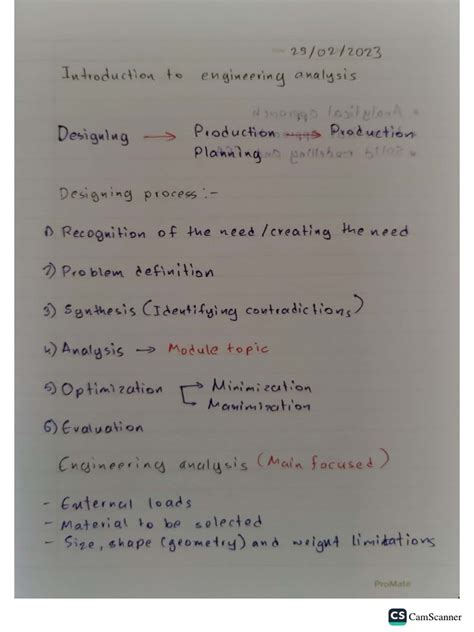 29/02/2023
Introduction to engineering analysis
Designing → Production → Production
Planning
Designing process :-
1) Recognition of the need / creating the need
2) Problem definition
3) Synthesis (Identifying contradictions)
4) Analysis → Module topic
5) Optimization → Minimization
→ Maximization
6) Evaluation
Engineering analysis (Main focused)
- External loads
- Material to be selected
- Size, shape (geometry) and weight limitations
ProMate
CS CamScanner